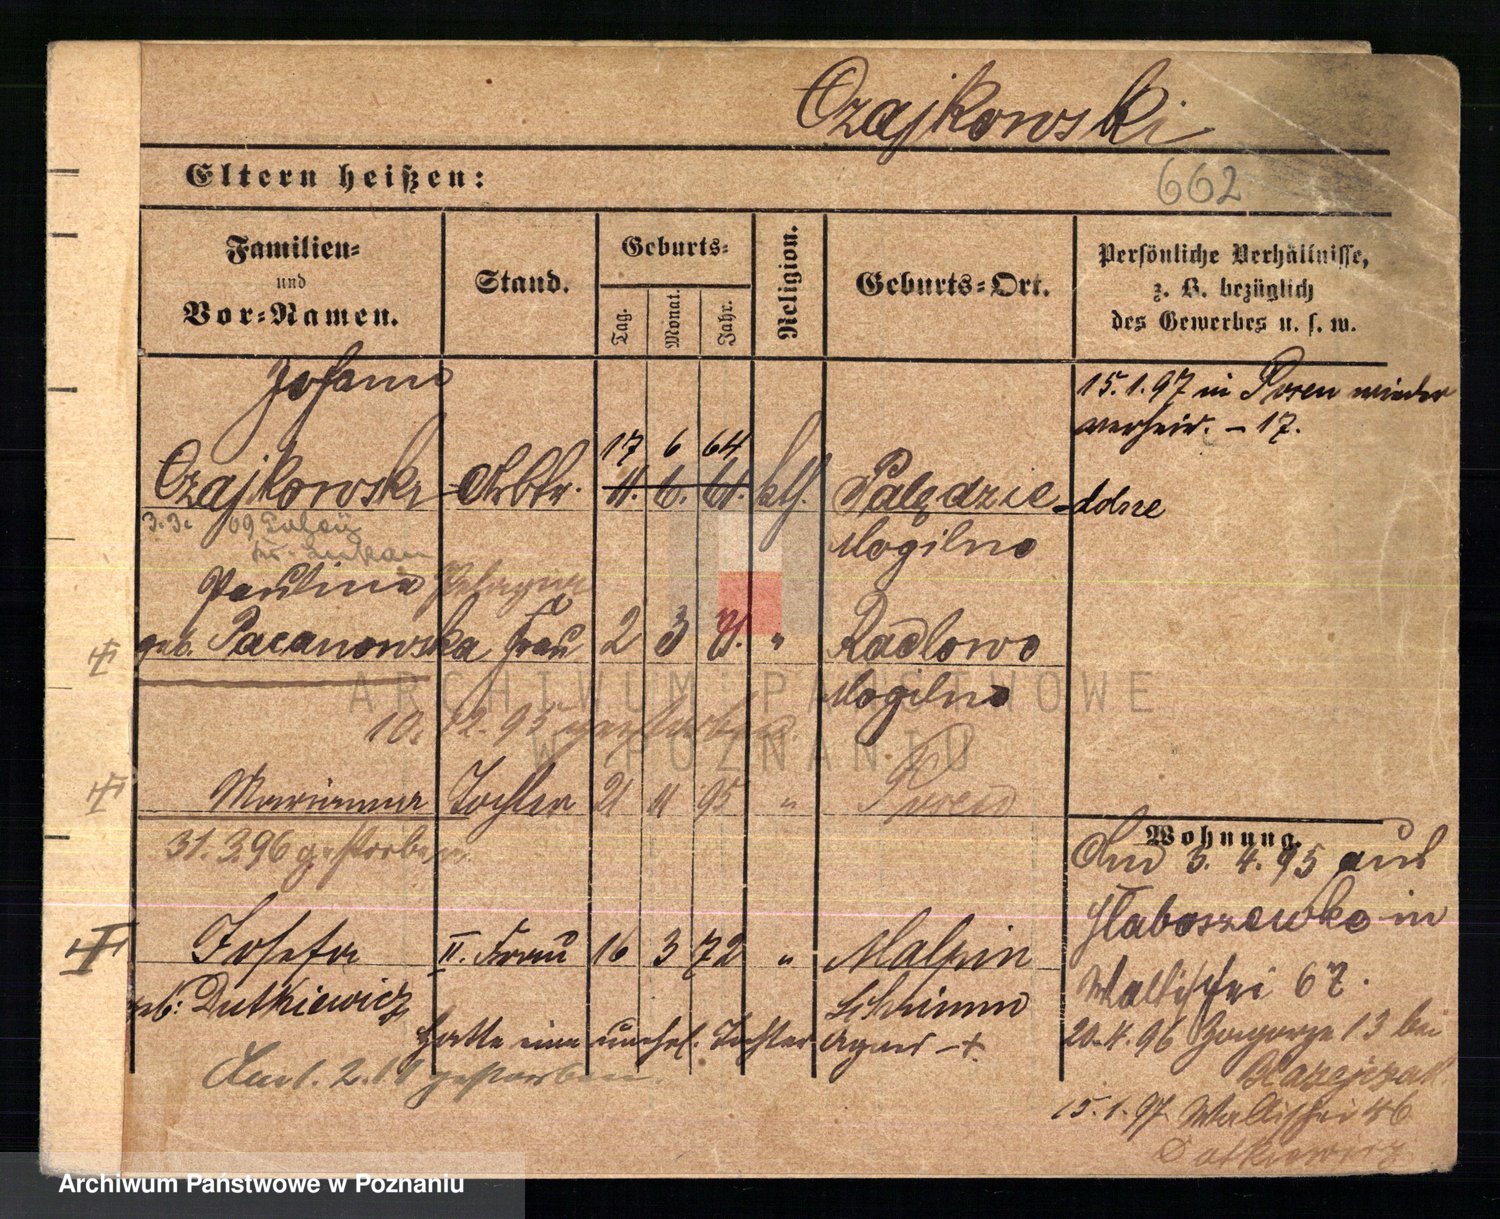 Czajkowski
Eltern heißen:
662
Familien-
und
Vor-Namen.
Stand.
Geburts-
Tag.
Monat.
Jahr.
Religion.
Geburts-Ort.
Persönliche Verhältnisse,
z. B. bezüglich
des Gewerbes u. s. w.
Johann
15.1.97 in Posen wieder
verheir. - 17.
17 6 64
Czajkowski Arbtr. 11. 6. 61. kth. Palędzie
ddne
3.3. 09
Mogilno
Paulina Pelagia
geb. Pacanowska Frau 2 3 71. " Radlowo
Mogilno
10. 12. 95 gestorben.
Marianna Tochter 21 11 95 " Posen
31.3.96 gestorben
Wohnung.
Am 3.4.95 aus
Hlaboszewko in
Wallischei 67.
Josefa II. Frau 16 3 72 " Malpin
geb: Dutkiewicz Schrimm
hatte eine unehel. Tochter Agnes - +.
Am 1.2.19 gestorben
20.4.96 Zagorze 13 bei
15.1.97 Wallischei 46
Dutkiewicz
ARCHIWUM PAŃSTWOWE
W POZNANIU
Archiwum Państwowe w Poznaniu